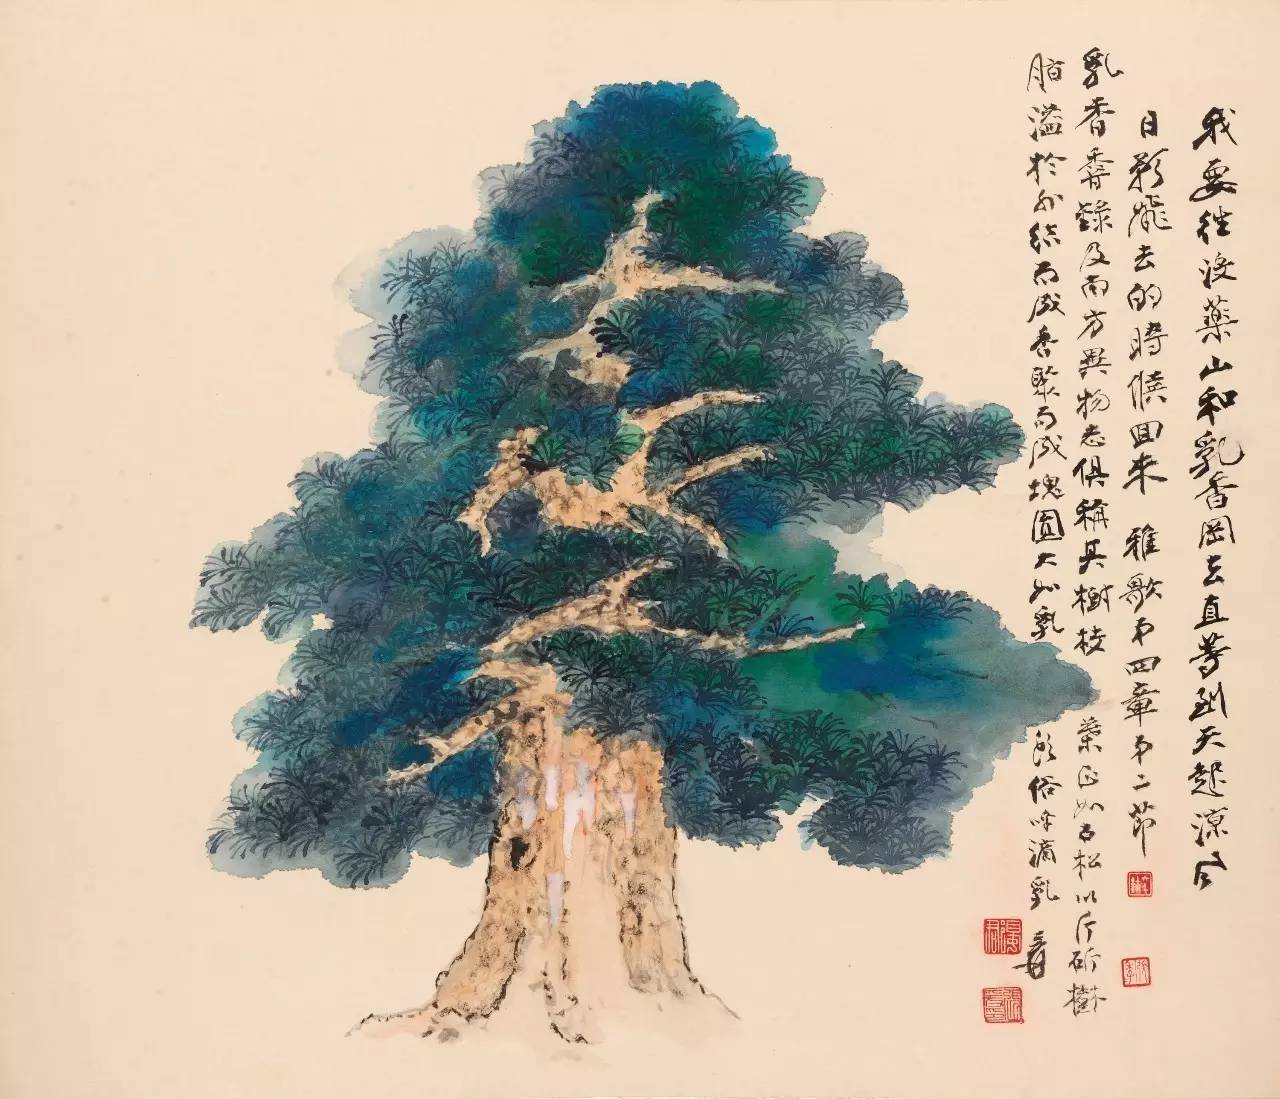 我要往没藥山和乳香岡去直等到天起涼風
日影飛去的時候回來 雅歌第四章第二節
乳香香錄及南方異物志俱稱其樹枝葉正如古松以斤斫樹
脂溢於外結而成香聚而成塊圓大如乳 俗呼滴乳 爰